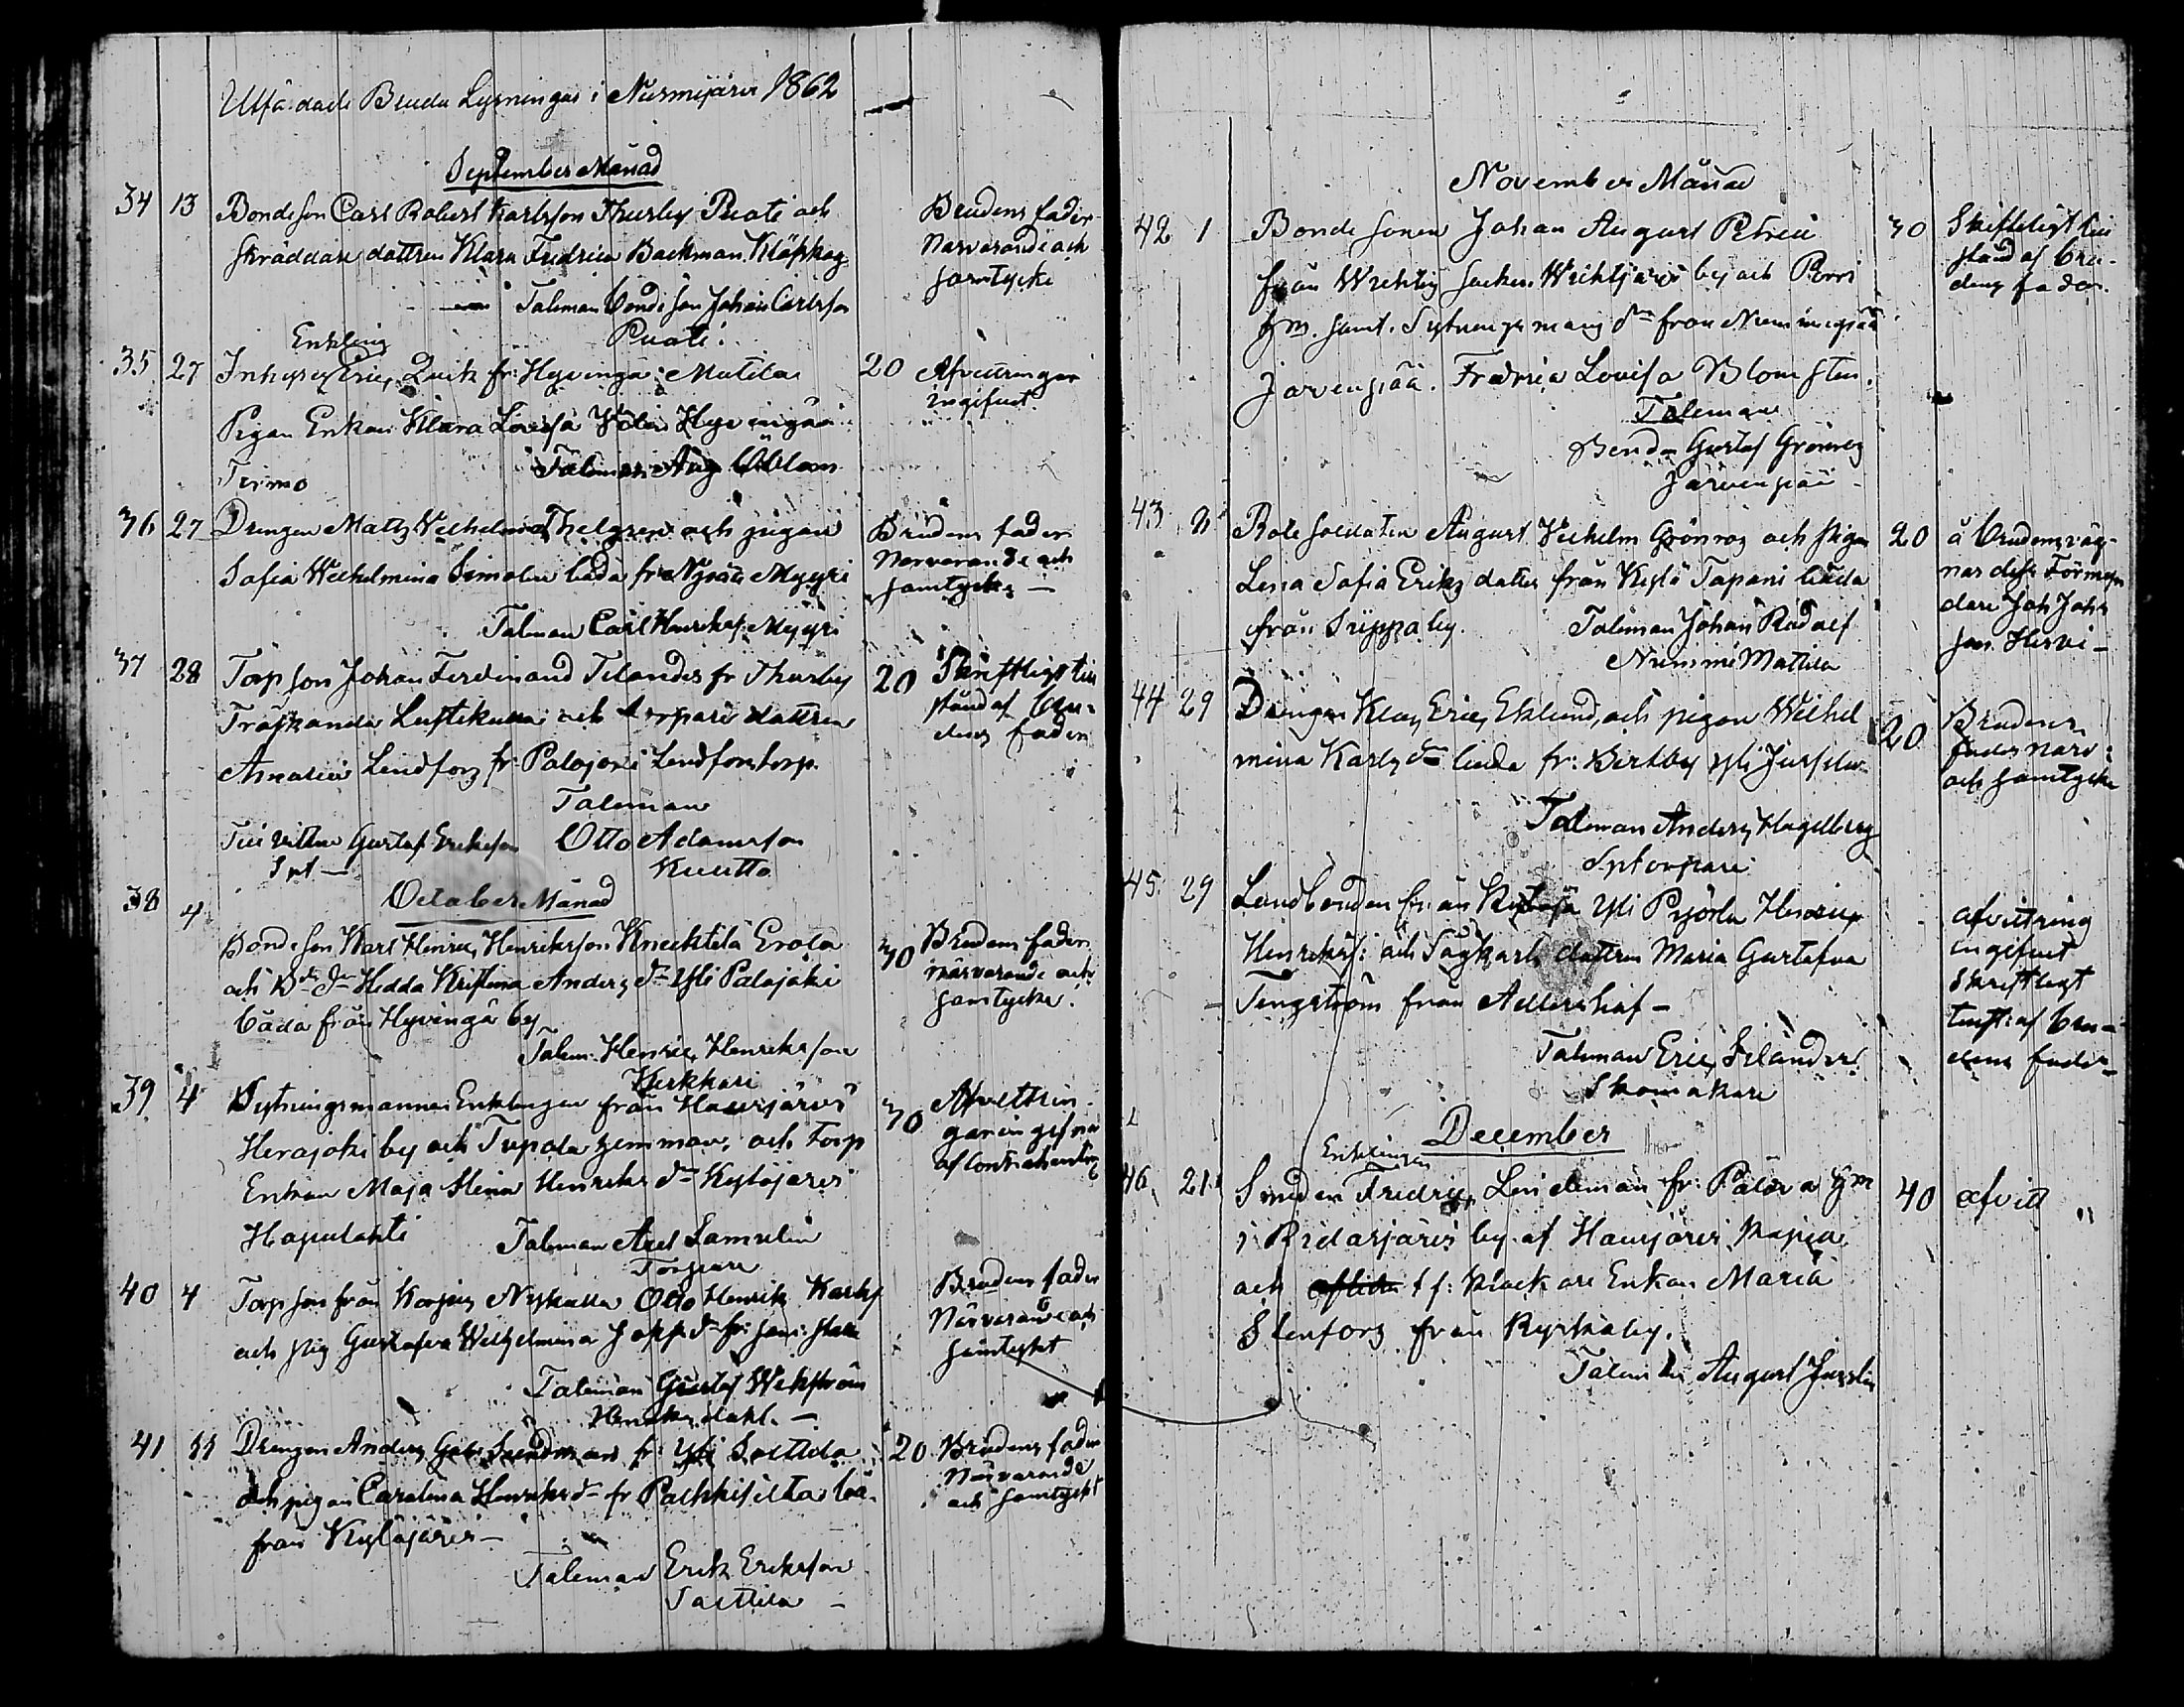 Utfärdade Bruda Lysningar i Nurmijärvi 1862
September Månad
34 13 Bondeson Carl Robert Karlsson Thurby Puati och
skräddare dottren Klara Fredrica Backman Kläpskog
Talman bondeson Johan Carlsson
Puati
Brudens fader
Närvarande och
samtycke
Enkling
35 27 Inhyses Eric Quik fr: Hyvinga Matila 20
Pigan Enkan Klara Lovisa Hyvingää
Talman Aug
Afvittringen
ingifvit
36 27 Drengen Matts Wilhelm Thelgren och pigan
Sofia Wilhelmina Simolin båda fr Myyri
Talman Carl Henriks: Myyri
Brudens fader
Närvarande och
samtycke —
37 28 Torp son Johan Ferdinand Telander fr Thurby 20
Träskända Luftikulla och torpare dottren
Amalia Lindfors fr: Palojoki Lindfors torp.
Talman
Till vittne Gustaf Erikson Otto Adamsson
Kuutto
Skriftligt till
stånd af bru-
dens fader
October Månad
38 4 Bondeson Karl Henric Henriksson Knecktila Erola 30
och Bde dr Hedda Kristina Anders dr Yli Palojäki
båda från Hyvingä by
Talm. Henric Henriksson
Kerkkari
Brudens fader
närvarande och
samtycke.
39 4 Sytningsmannen Enklingen från Hausjärvi 30
Herajoki by och hemman, och Torp
Enkan Maja Stina Henriks dr Kytäjärvi
Hapulahti Talman Axel Samuelin
Torpare
Afvittrin-
garin gifna
af Contrahenten
40 4 Torp son från Korpi Nykulla Otto Henrik Karls
och pig Gustafva Wilhelmina
Talman Gustaf Wikström
Brudens fader
Närvarande och
samtyckt
41 11 Drengen Anders Gab: fr: Yli Soittila 20
och pigan Carolina Henriks dr fr bå-
från Kytäjärvi —
Talman Erik Eriksson
Soittila —
Brudens fader
Närvarande
och samtyckt
November Månad
42 1 Bonde sonen Johan August Petrell 30
från Wichtis socken Wichtijärvi by och Porri
hm. samt. Sytningsmans dr från Nummenpää
Järvenpää. Fredrica Lovisa Blomsten.
Talman
Bonden Gustaf Grönroos
Järvenpää
Skriftligt till
stånd af bru-
dens fader.
43 Rotesoldaten August Wilhelm Grönroos och pigan 20
Lena Sofia Eriks dotter från Kylä Tapani båda
från Suppaby. Talman Johan Rudolf
Nummi Mattila
å brudens väg-
nar dess Förmyn
dare Joh Johs
son Hervi —
44 29 Drengen Klas Eric Eklund, och pigan Wilhel 20
mina Karls dr båda fr: Bertby Yli Jussila
Talman Anders Hagelberg
Sptorpare
Brudens
fader närv:
och samtycke
45 29 Landbonden från Yli Pyörlä Henric
Henrikss: och Sågkarls dottren Maria Gustafva
Tengström från Adlershof —
Talman Eric Selander
Skomakare
afvittring
ingifvit
Skriftligt
tillst: af bru-
dens fader —
December
Enklingen
46, 21 Smeden Fredric Lindeman fr: Palova hm 40
i Ridasjärvi by af Hausjärvi Kapia
och aflidn f: klockare Enkan Maria
Stenfors från Kyrkoby.
Talman August Jusslin
afvitt